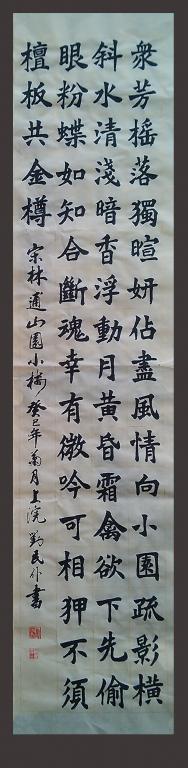 衆芳搖落獨暄妍佔盡風情向小園疏影橫
斜水清淺暗香浮動月黃昏霜禽欲下先偷
眼粉蝶如知合斷魂幸有微吟可相狎不須
檀板共金樽 宋林逋山園小梅 癸巳年菊月上浣 民 書